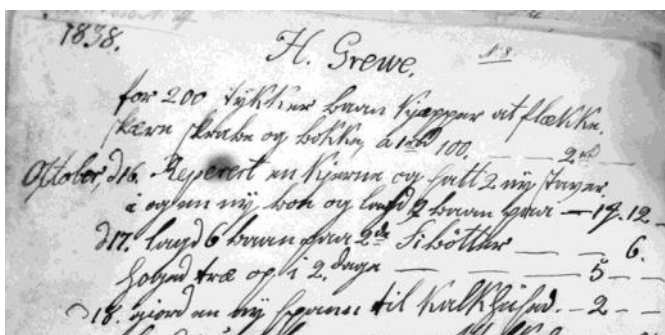 1838.
H. Grewe. N. 8
for 200 stykker baan kjæpper at flække,
skære skrabe og bokke, a 100. — 2
October, d 16. Reperert en kjerne og satt 2 ny staver
i og en ny bon og lagd 2 baan paa — 12 —
d 17. lagd 6 baan paa 2 Sibötter — — 6.
træ op i 2. dage — — — — 5 — —
d 18. giord en ny spann til Kalkhused. — 2 — —